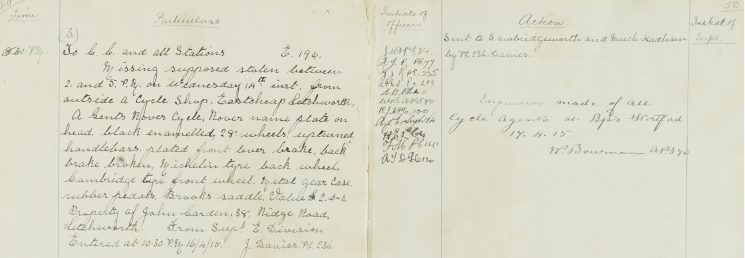 Time
Particulars
Initials of
Officers
Action
50
Initial of
Supt.
(3)
To C. C. and all Stations E. 196.
Missing supposed stolen between
2. and 5. P.M. on Wednesday 14th inst. from
outside a Cycle Shop, Eastcheap Letchworth,
A Gents Rover Cycle, Rover name plate on
head, black enamelled, 28" wheels, upturned
handlebars, plated front lever brake, back
brake broken, Michelin tyre back wheel,
Cambridge tyre front wheel, Metal Gear Case,
rubber pedals, Brooks saddle, Value £2-0-0.
Property of John Carden, 38, Ridge Road,
Letchworth. From Supt. E. Division
Entered at 10.30 P.M. 16/4/15. J. Davies. P.C. 236.
Sent to Sawbridgeworth and Much Hadham
by P.C. 236. Davies.
Enquiries made of all
cycle agents at Bps Stortford
17.4.15
W. Bowman